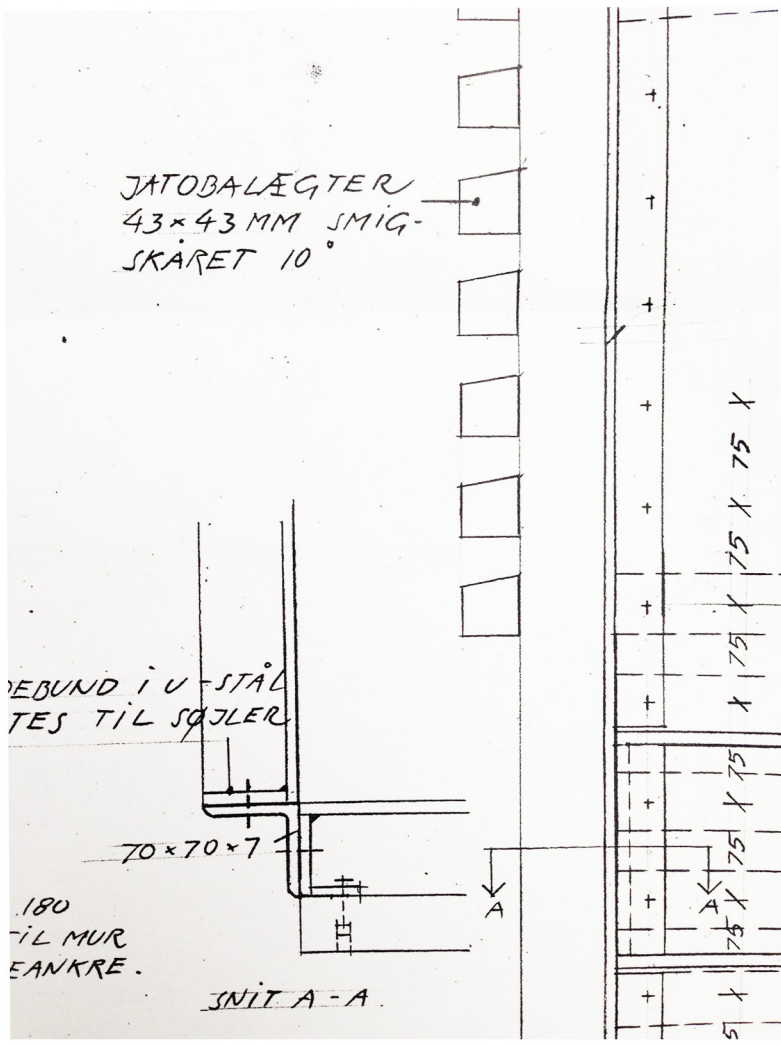 JATOBALÆGTER
43×43 MM SMIG-
SKÅRET 10°
DEBUND I U-STÅL
TES TIL SØJLER
70×70×7
180
TIL MUR
EANKRE.
SNIT A-A
A A
75 X 75 X 75 X 75 X 75 X 75 X 75 X